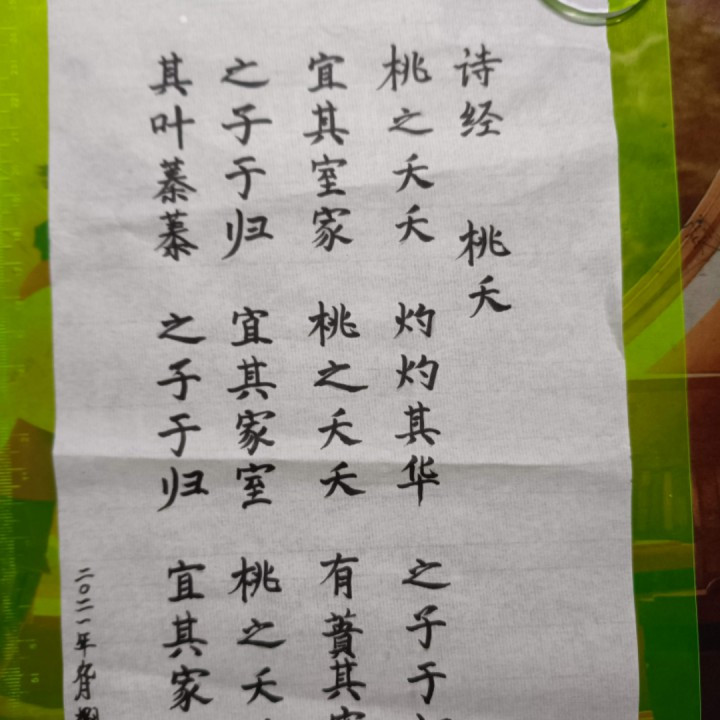 诗经 桃夭
桃之夭夭 灼灼其华 之子于
宜其室家 桃之夭夭 有蕡其
之子于归 宜其家室 桃之夭
其叶蓁蓁 之子于归 宜其家
二〇二一年